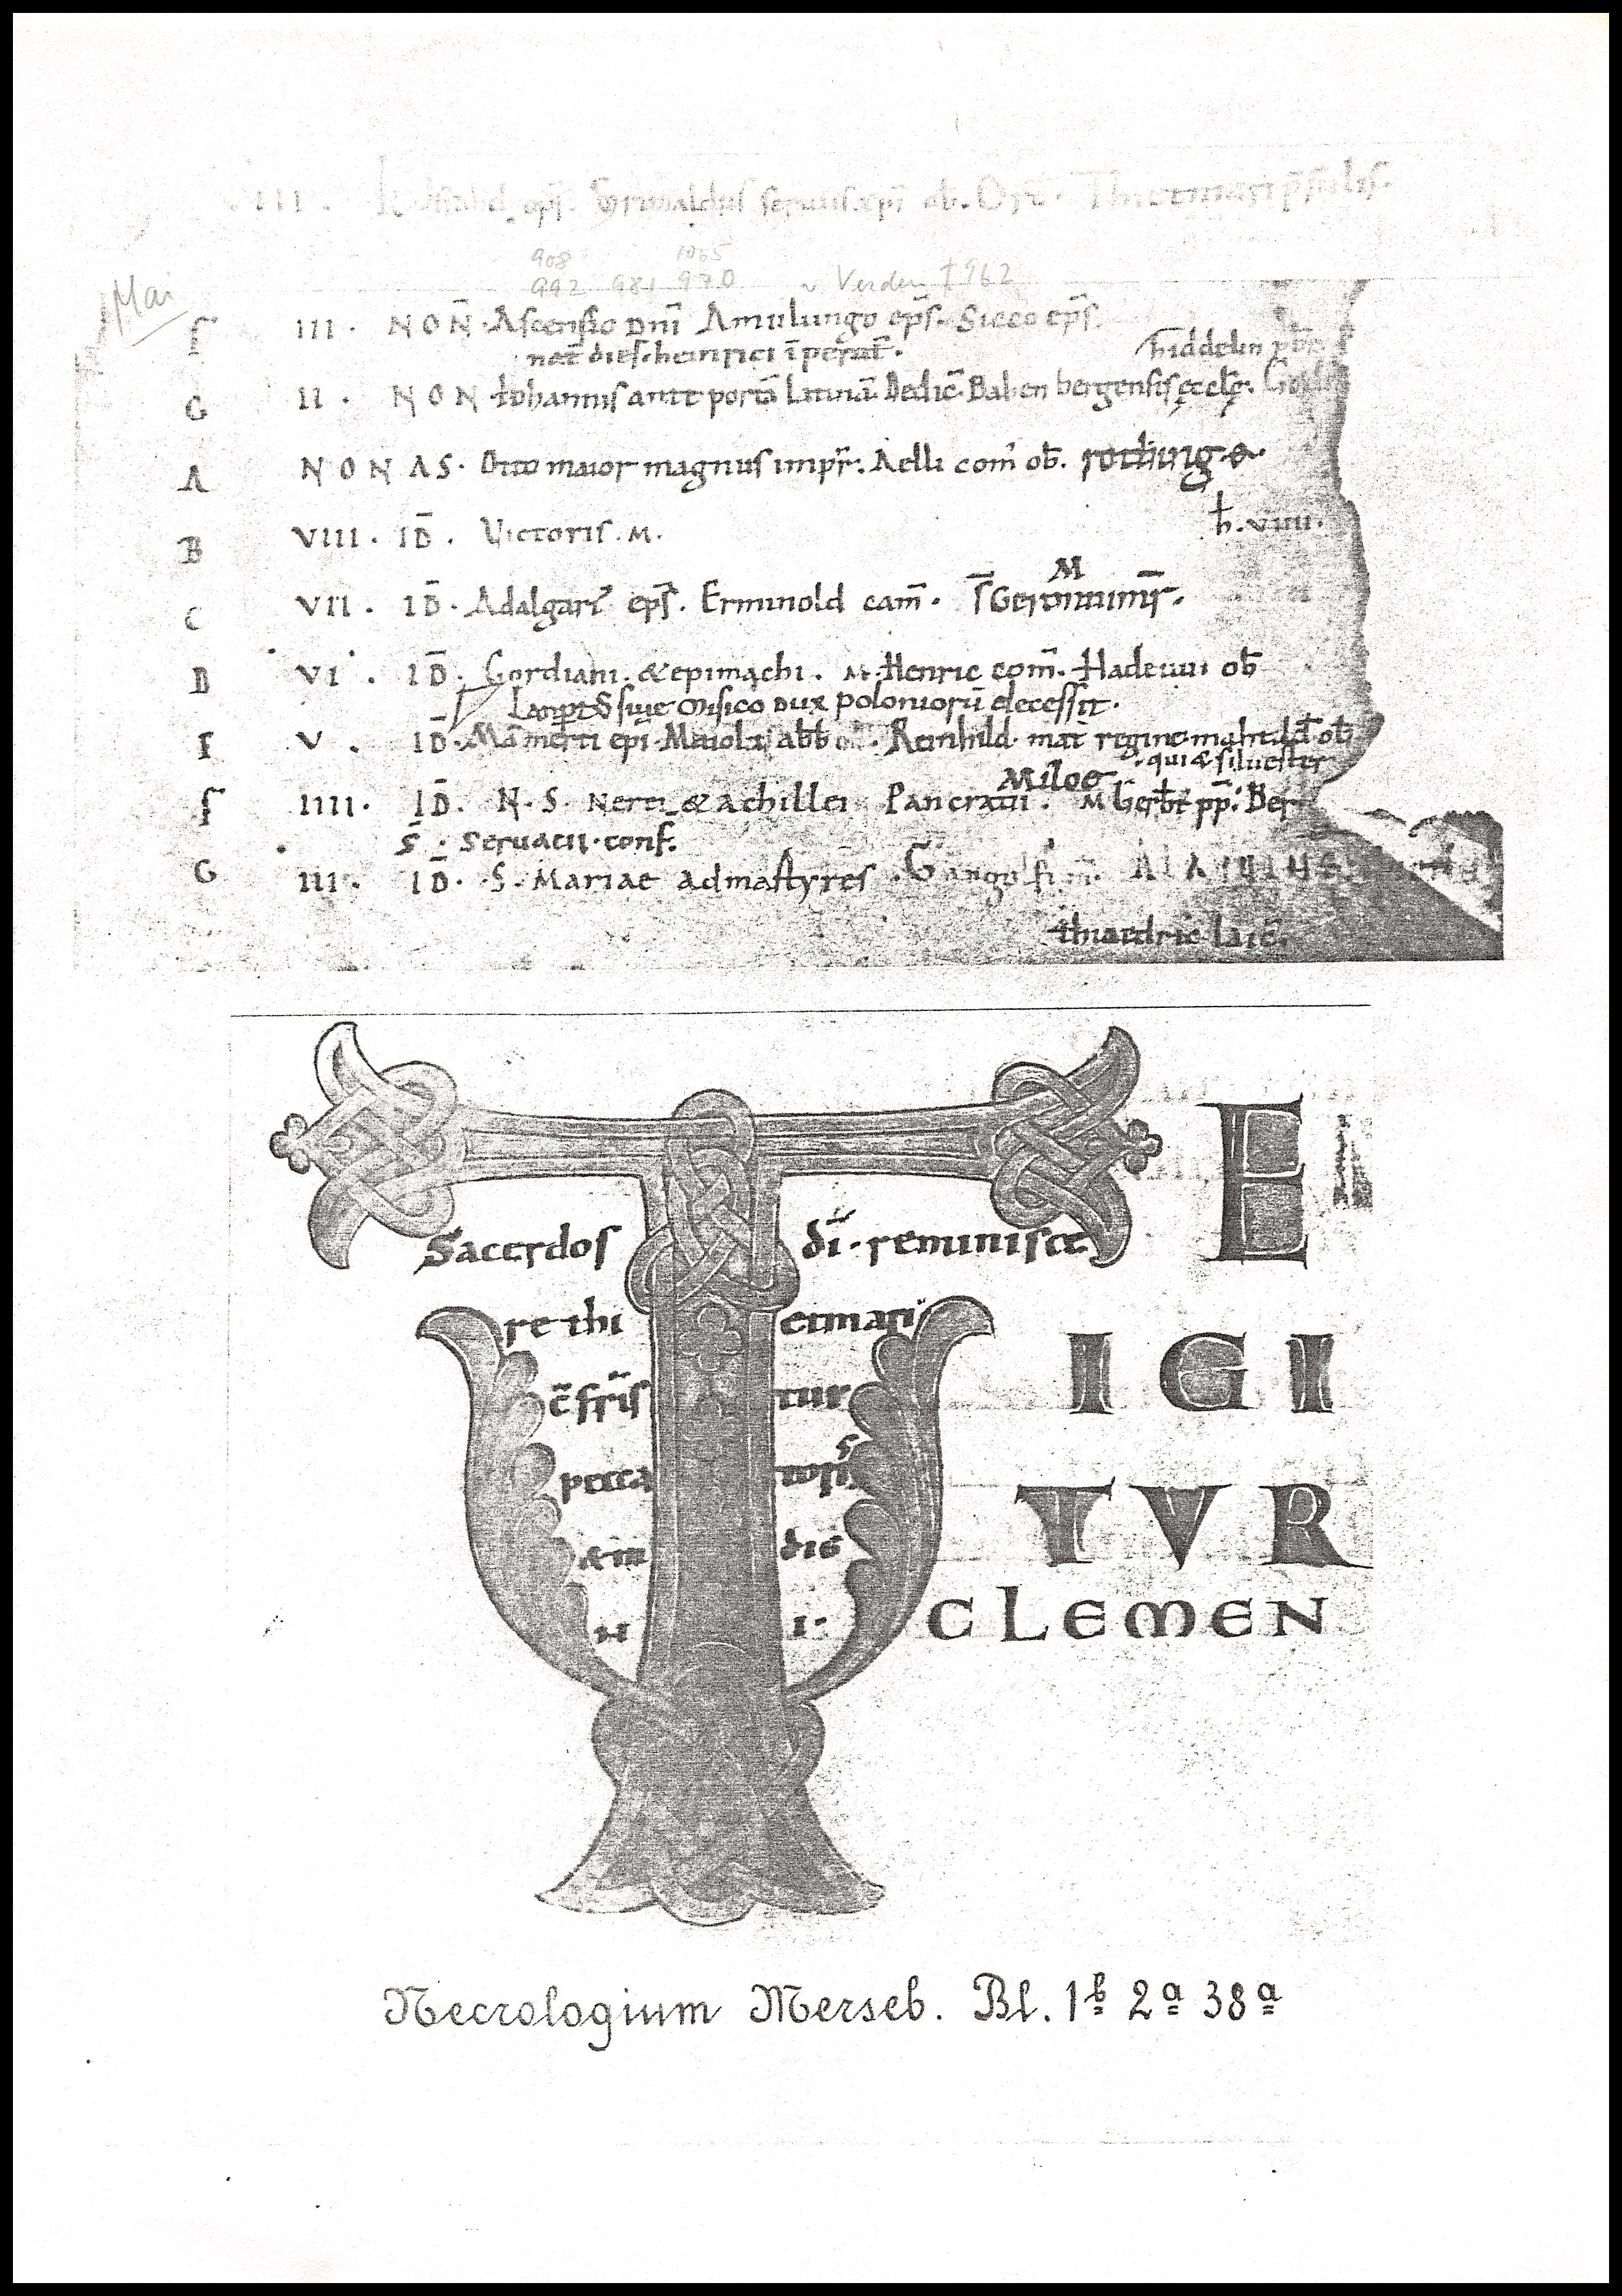 VIII. eps. Grimaldus seruus xpi ob. Ort. Thietmari psulis.
908 1065
992 981 970 v Verden † 962
Mai
F III. NON̄. Ascensio Dn̄i Amulungo ep̄s. Sicco ep̄s.
nat̄ dies heinrici īperat̄. hiddelin pb̄r
G II. NON Iohannis ante portā Latinā. Dedic̄. Babenbergensis ęcclę.
A NONAS. Otto maior magnus imp̄r. Aelli com̄ ob̄. rothinge.
B VIII. ID̄. Victoris. M. h. viiii.
C VII. ID̄. Adalgari ep̄s. Erminold cam̄. M
D VI. ID̄. Gordiani. & epimachi. M. Henric com̄. Hadeuui ob̄
siue Misico Dux Poloniorū decessit.
E V. ID̄. Mām̄erti epi. Maioli abb̄ ob. Reinhild. mat̄ regine mahtild̄ ob̄
qui & siluester
IIII. ID̄. N. S. Nerei & achillei Pancratii. M Gerbt pp̄. Ber
Miloe
S̄. Seruacii. conf̄.
G III. ID̄. S. Mariae ad martyres. Gangolfi m̄.
thiaedric laic̄.
TE
IGI
TVR
CLEMEN
Sacerdos dī. reminisce
re thi etmari
c̄fr̄is tur
pecca toris
& in dig
N I.
Necrologium Merseb. Bl. 1b 2a 38a